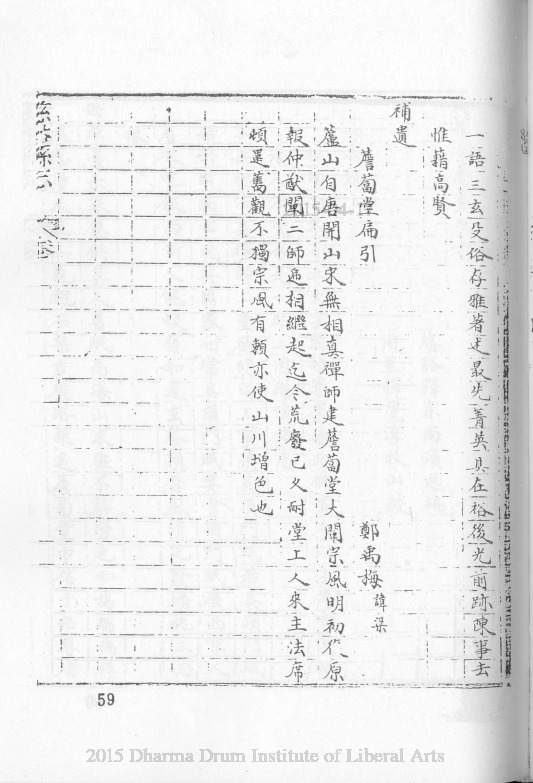 一語三玄殳俗存雅著述最先菁英具在裕後光前跡陳事去
惟藉高賢
補遺
簷蔔堂扁引
鄭禹梅諱梁
蘆山自唐開山宋無相真禪師建簷蔔堂大闡宗風明初代原
報仲猷闡二師迭相繼起迄今荒廢已久耐堂上人來主法席
頓還舊觀不獨宗風有賴亦使山川增色也
59
2015 Dharma Drum Institute of Liberal Arts